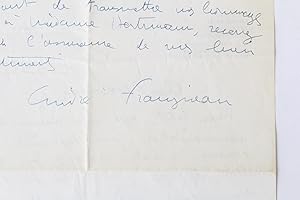 de transmettre nos hommages
à Madame Hortmann, recevez
l'assurance de nos bien
André Frangneau